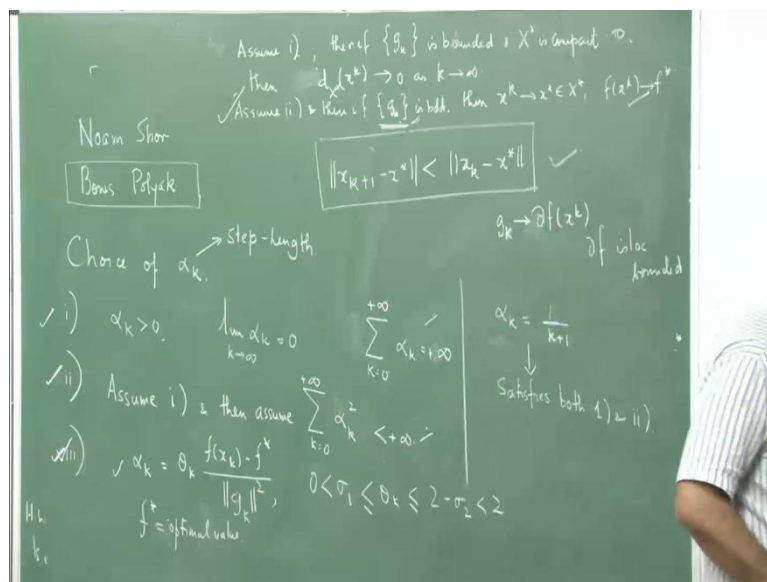 Assume i), then if {g_k} is bounded & X* is compact
then d_X*(x^k) → 0 as k → ∞.
✓ Assume (i) & then if {g_k} is bdd. then x^k → x* ∈ X*, f(x^k) → f*
Noam Shor
Boris Polyak
||x_{k+1} - x*|| < ||x_k - x*|| ✓
g_k → ∂f(x^k)
∂f is loc
bounded
Choice of α_k. → step-length
✓ i) α_k > 0, lim_{k→∞} α_k = 0 ∑_{k=0}^{+∞} α_k = +∞
✓ ii) Assume i) & then assume ∑_{k=0}^{+∞} α_k^2 < +∞.
iii) ✓ α_k = θ_k (f(x_k) - f*) / ||g_k||^2, 0 < σ_1 ≤ θ_k ≤ 2 - σ_2 < 2
f* = optimal value
α_k = 1/(k+1)
↓
Satisfies both 1) & ii).
H.W.